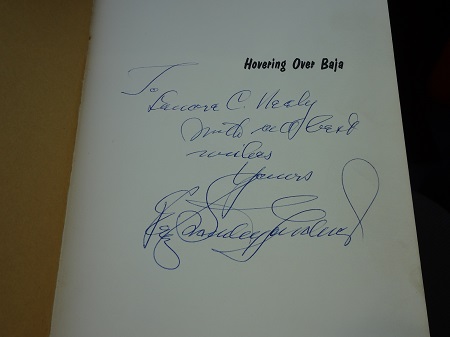 Hovering Over Baja
To
Lenore C. Healy
with all best
wishes
Yours
Stanley Gardner